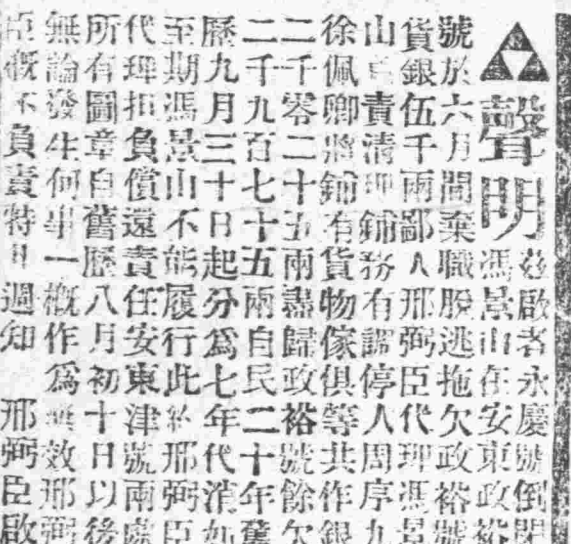 聲明
茲啟者永慶號倒閉
馮景山在安東政裕
號於六月間棄職脫逃拖欠政裕號
貨銀伍千兩鄙人邢弼臣代理馮景
山責清理鋪務有謬停人周序九
徐佩卿將鋪有貨物傢俱等共作銀
二千零二十五兩盡歸政裕號餘欠
二千九百七十五兩自民二十年舊
歷九月三十日起分為七年代消如
至期馮景山不能履行此約邢弼臣
代理担負償還責任安東津號兩處
所有圖章自舊歷八月初十日以後
無論發生何事一概作為無效邢弼
臣概不負責特此週知 邢弼臣啟